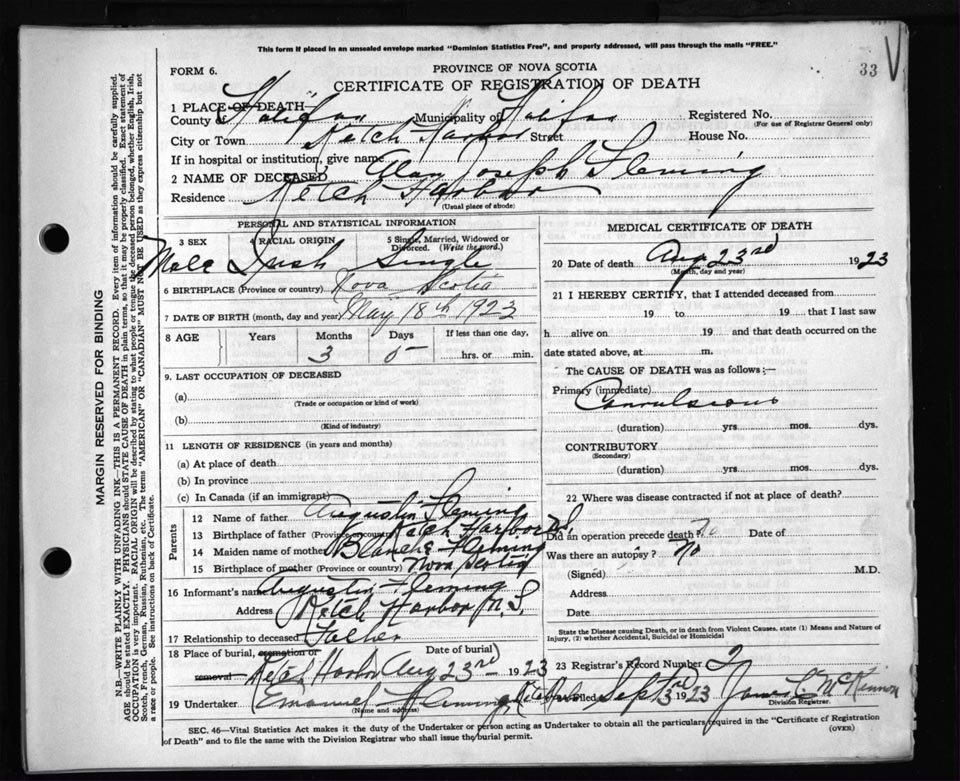 This form if placed in an unsealed envelope marked "Dominion Statistics Free", and properly addressed, will pass through the mails "FREE."
33 V
PROVINCE OF NOVA SCOTIA
FORM 6.
CERTIFICATE OF REGISTRATION OF DEATH
1 PLACE OF DEATH
County Halifax Municipality of Halifax Registered No.
(For use of Registrar General only)
City or Town Ketch Harbor Street House No.
If in hospital or institution, give name
2 NAME OF DECEASED Alan Joseph Fleming
Residence Ketch Harbor
(Usual place of abode)
PERSONAL AND STATISTICAL INFORMATION
3 SEX 4 RACIAL ORIGIN 5 Single, Married, Widowed or Divorced. (Write the word.)
Male Irish Single
6 BIRTHPLACE (Province or country) Nova Scotia
7 DATE OF BIRTH (month, day and year) May 18th 1923
8 AGE Years Months Days If less than one day,
3 5 hrs. or min.
9. LAST OCCUPATION OF DECEASED
(a)
(Trade or occupation or kind of work)
(b)
(Kind of industry)
11 LENGTH OF RESIDENCE (in years and months)
(a) At place of death
(b) In province
(c) In Canada (if an immigrant)
Parents
12 Name of father Augustin Fleming
13 Birthplace of father (Province or country) Ketch Harbor N.S.
14 Maiden name of mother Blanche Fleming
15 Birthplace of mother (Province or country) Nova Scotia
16 Informant's name Augustin Fleming
Address Ketch Harbor N.S.
17 Relationship to deceased Father
18 Place of burial, cremation or removal Ketch Harbor Date of burial Aug 23rd 1923
19 Undertaker Emanuel Fleming
(Name and address)
MEDICAL CERTIFICATE OF DEATH
20 Date of death Aug 23rd 1923
(Month, day and year)
21 I HEREBY CERTIFY, that I attended deceased from
19 to 19 that I last saw
h alive on 19 and that death occurred on the
date stated above, at m.
The CAUSE OF DEATH was as follows:—
Primary (immediate) Convulsions
(duration) yrs mos. dys.
CONTRIBUTORY
(Secondary)
(duration) yrs. mos. dys.
22 Where was disease contracted if not at place of death?
Did an operation precede death? No Date of
Was there an autopsy? No
(Signed) M.D.
Address
Date
State the Disease causing Death, or in death from Violent Causes, state (1) Means and Nature of Injury, (2) whether Accidental, Suicidal or Homicidal
23 Registrar's Record Number 2
Filed Sept 3rd 1923 James C McKinnon
Division Registrar.
SEC. 46—Vital Statistics Act makes it the duty of the Undertaker or person acting as Undertaker to obtain all the particulars required in the "Certificate of Registration
of Death" and to file the same with the Division Registrar who shall issue the burial permit.
(OVER)
MARGIN RESERVED FOR BINDING
N.B.—WRITE PLAINLY WITH UNFADING INK—THIS IS A PERMANENT RECORD. Every item of information should be carefully supplied.
AGE should be stated EXACTLY. PHYSICIANS should STATE CAUSE OF DEATH in plain terms, so that it may be properly classified. Exact statement of
OCCUPATION is very important. RACIAL ORIGIN will be described by stating to what people or tongue the deceased person belonged, whether English, Irish,
Scotch, French, German, Russian, Ruthenian, etc. The terms "AMERICAN" OR "CANADIAN" MUST NOT BE USED as they express citizenship but not
a race or people. See instructions on back of Certificate.